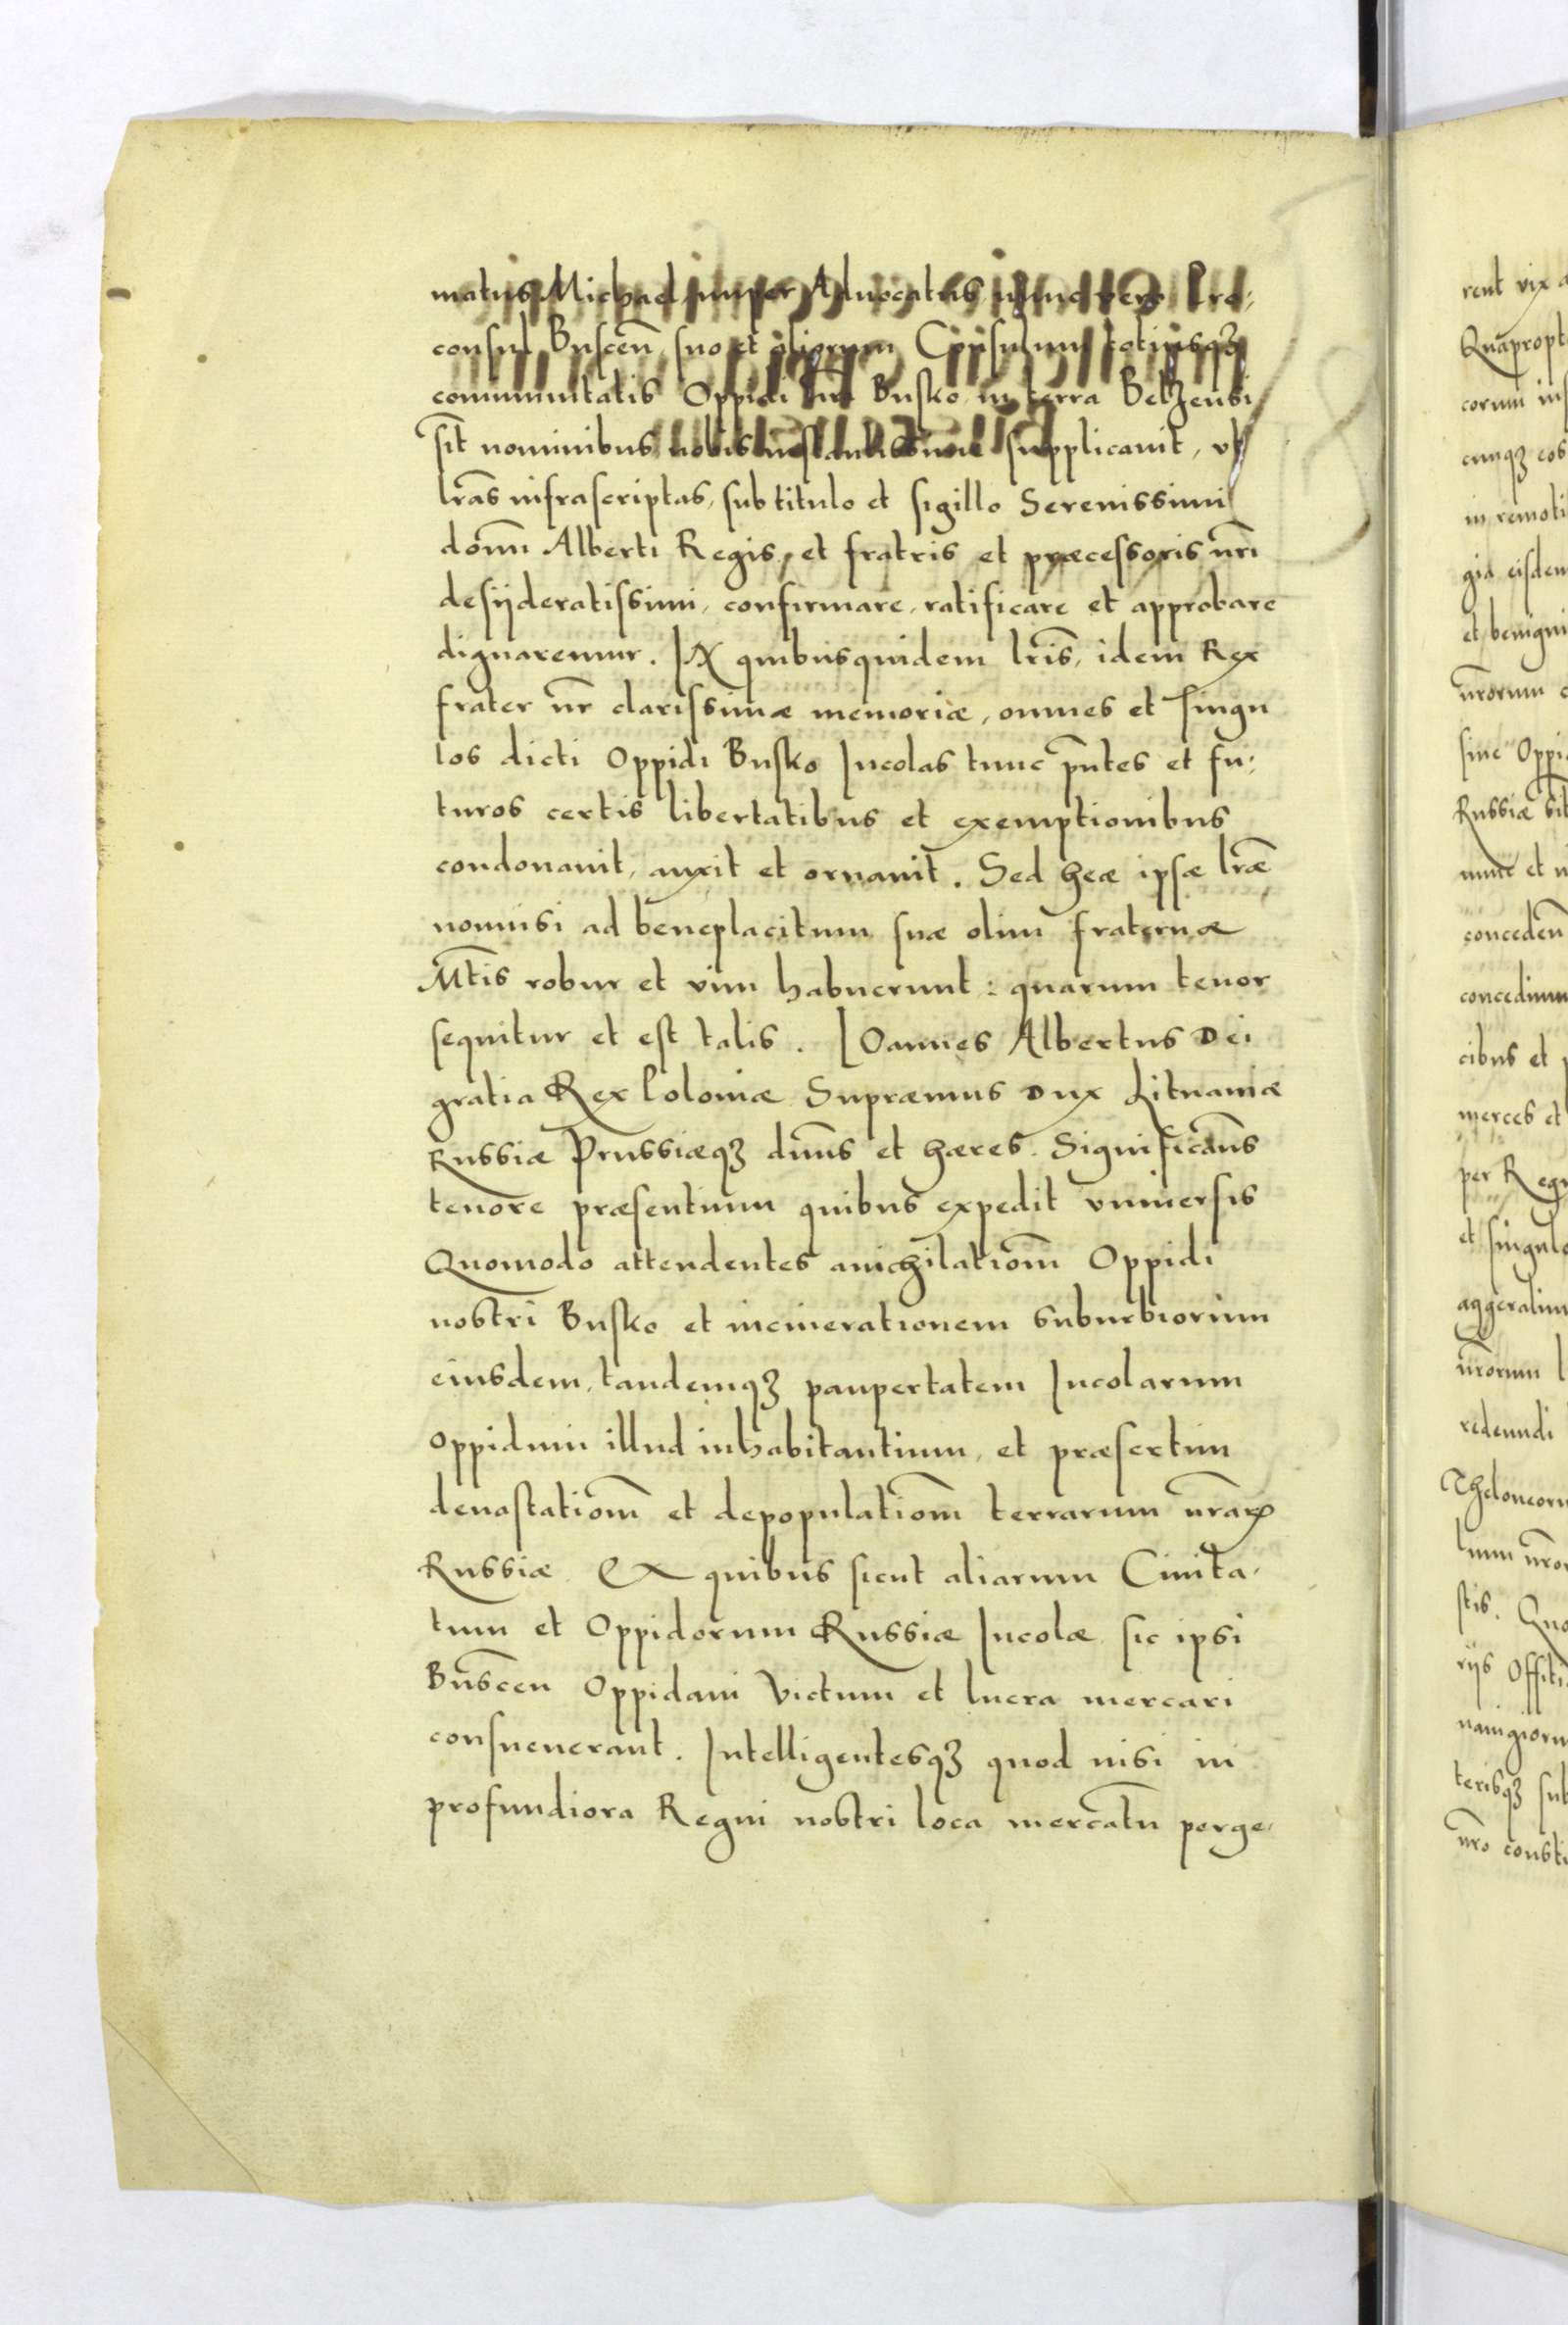 matus Michael nuper Aduocatus nunc vero Pro:
consul Buscen̄ suo et aliorum Consulum totiusqꝫ
communitatis Oppidi nr̄i Busko in terra Belzensi
sit̄ nominibus nobis instantissime supplicauit, vt
lrās infrascriptas, sub titulo et sigillo Serenissimi
domī Alberti Regis, et fratris et præcessoris nr̄i
desijderatissimi, confirmare, ratificare et approbare
dignaremur. IN quibusquidem lrīs, idem Rex
frater nr̄ clarissimæ memoriæ, omnes et singu
los dicti Oppidi Busko Incolas tunc pn̄tes et fu:
turos certis libertatibus et exemptionibus
condonauit, auxit et ornauit. Sed heæ ipsæ lrǣ
nonnisi ad beneplacitum suæ olim fraternæ
Mt̄is robur et vim habuerunt: quarum tenor
sequitur et est talis. IOannes Albertus Dei
gratia Rex Poloniæ Supræmus Dux Lituaniæ
Russiæ Prussiæqꝫ dnūs et hæres. Significam̄s
tenore præsentium quibus expedit vniuersis
Quomodo attendentes anichilatiom̄ Oppidi
nostri Busko et incinerationem suburbiorum
eiusdem, tandemqꝫ paupertatem Incolarum
oppidum illud inhabitantium, et præsertim
deuastatiom̄ et depopulatiom̄ terrarum nr̄aꝝ
Russiæ EX quibus sicut aliarum Ciuita,
tum et Oppidorum Russiæ Incolæ sic ipsi
Bus̄cen Oppidani Victum et lucra mercari
consueuerant. Intelligentesqꝫ quod nisi in
profundiora Regni nostri loca mercatū perge,
rent vix
Quapropt
corum
cunqꝫ eos
in remoti
gia eisdem
et benigni
nr̄orum
siue Oppi
Russiæ
nunc et
conceden̄
concedimu
cibus et
merces et
per Regn
et singulo
aggeralium
nr̄orum
redeundi
Theloneoru
stis. Quo
rijs Offiti
nauigioru
terisqꝫ sub
nr̄o consti